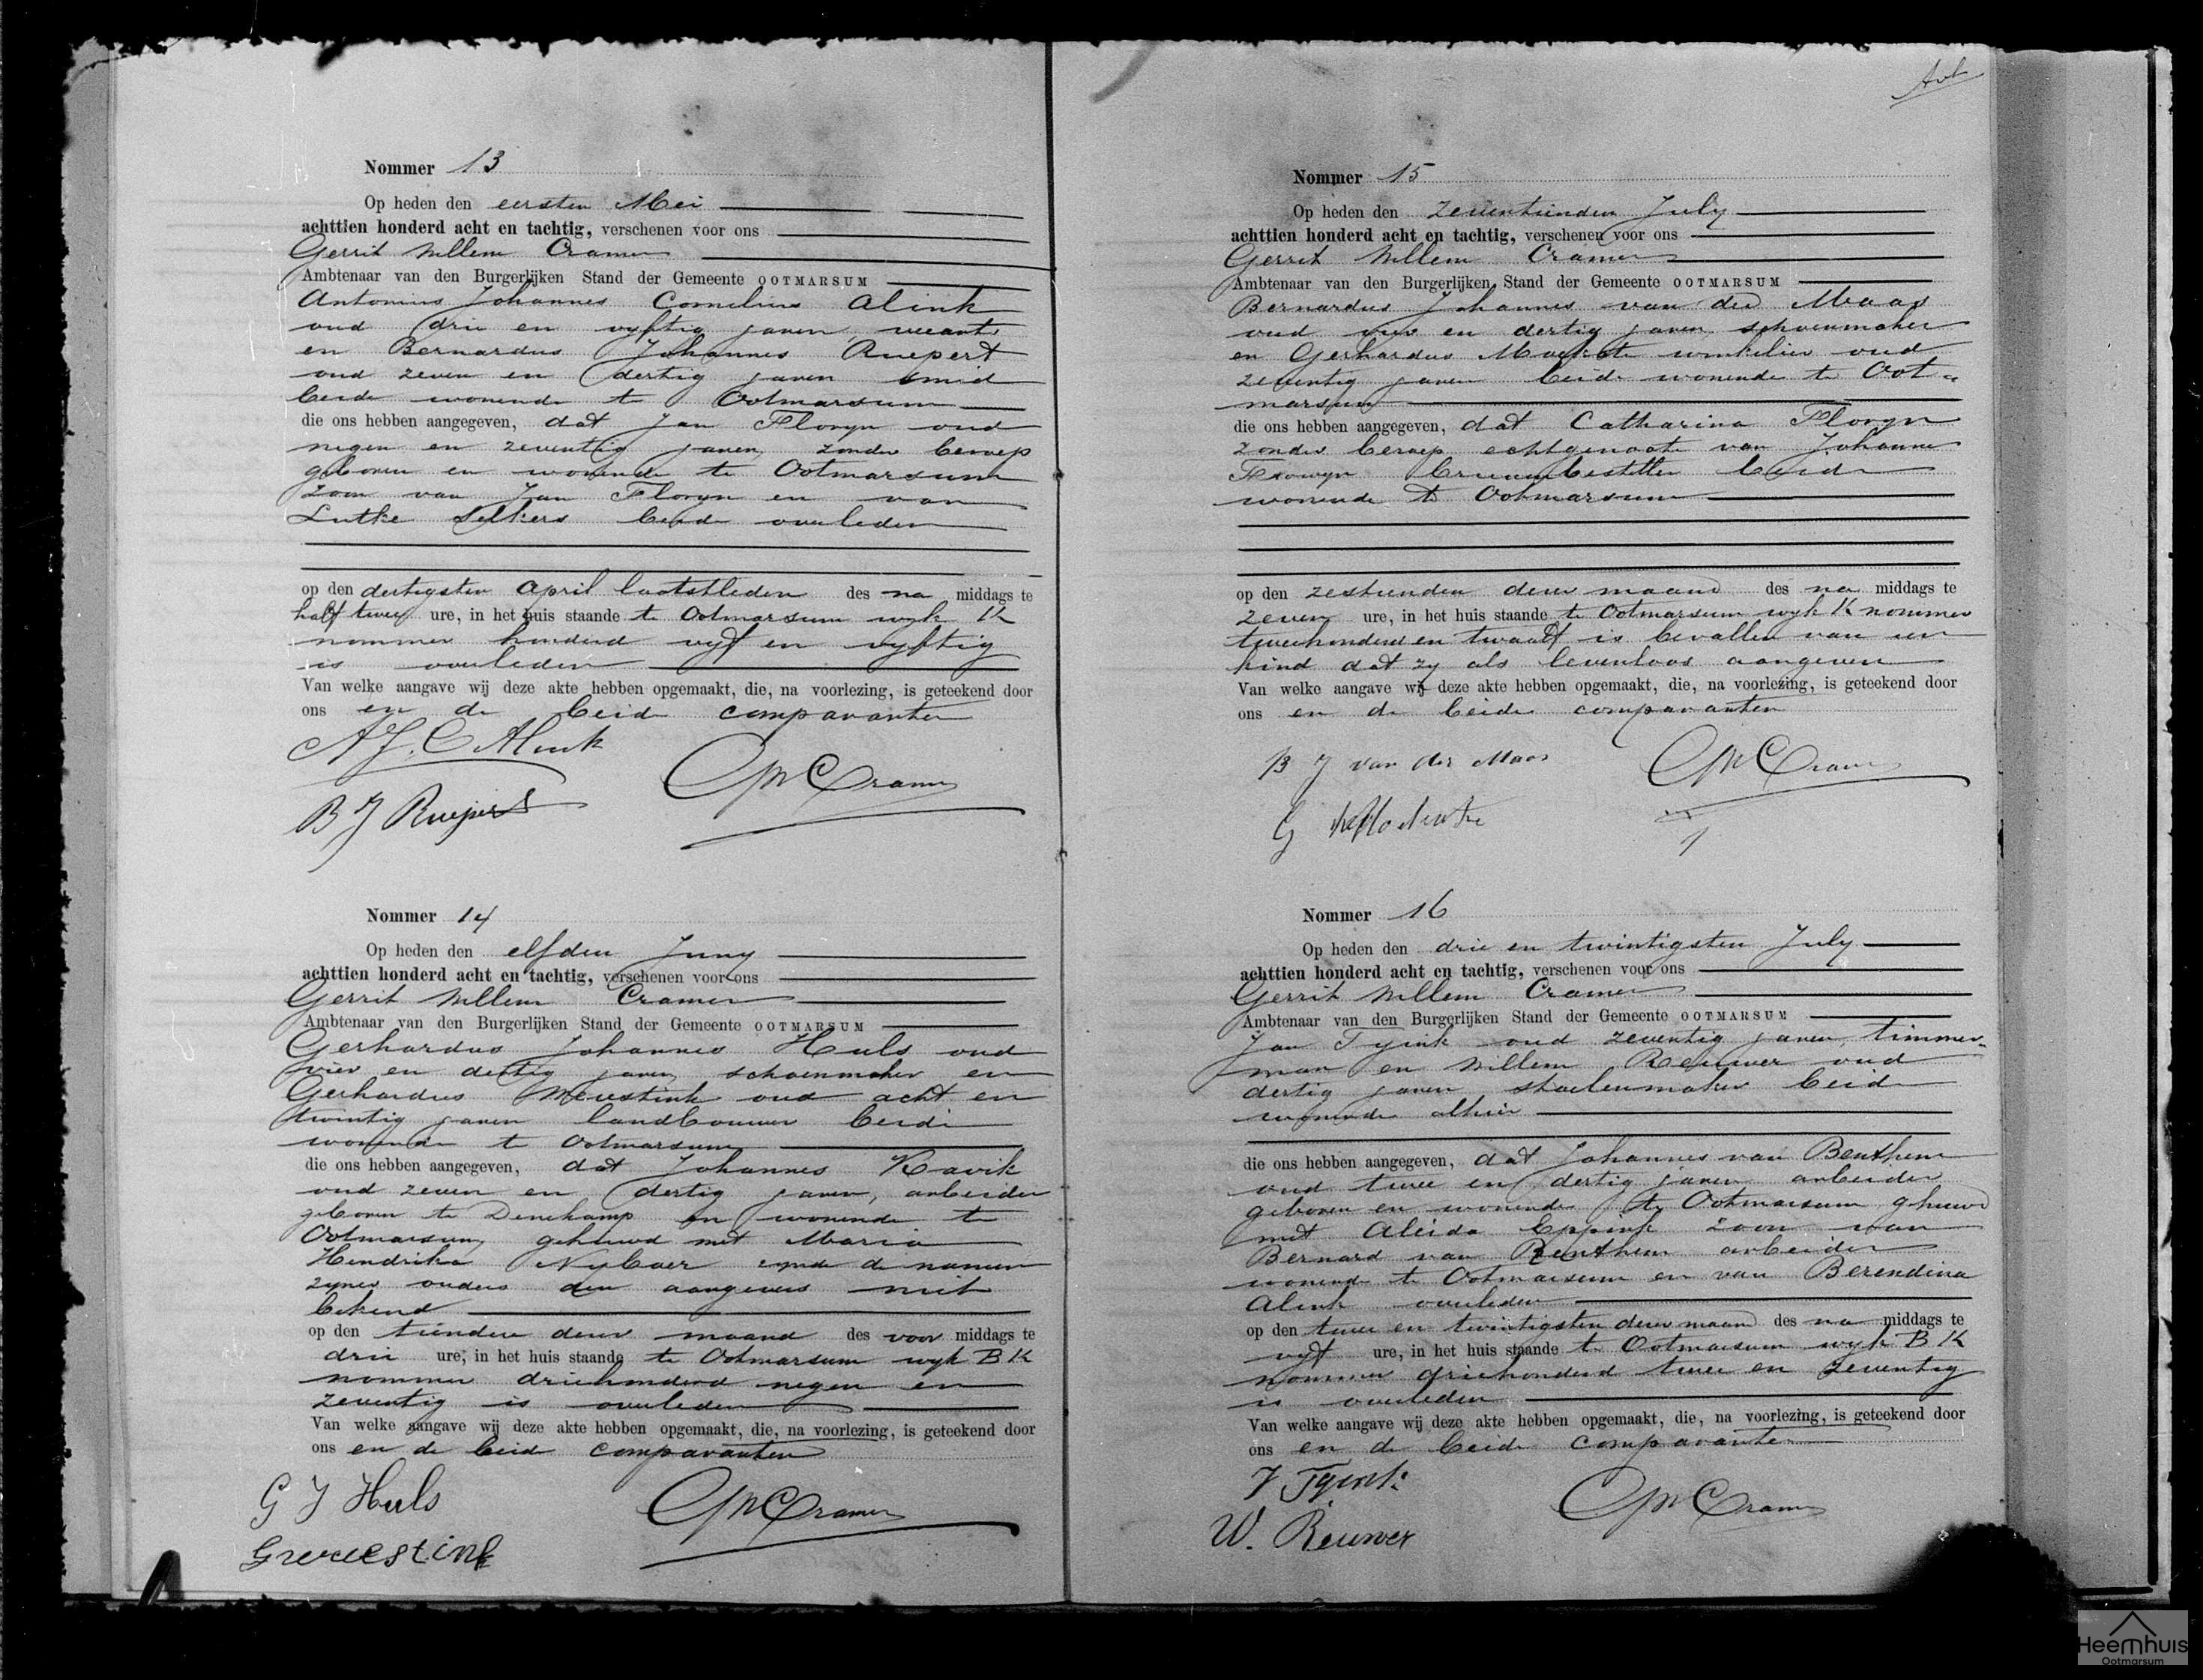 Nommer 13
Op heden den eersten Mei
achttien honderd acht en tachtig, verschenen voor ons
Gerrit Willem Cramer
Ambtenaar van den Burgerlijken Stand der Gemeente OOTMARSUM
Antonius Johannes Cornelius Alink
oud drie en vyftig jaren
en Bernardus Johannes Ruepert
oud zeven en dertig jaren smid
beide wonende te Ootmarsum
die ons hebben aangegeven, dat Jan Floryn oud
negen en zeventig jaren, zonder beroep
geboren en wonende te Ootmarsum
zoon van Jan Floryn en van
Lutke Selkers beide overleden
op den dertigsten April laatstleden des na middags te
half twee ure, in het huis staande te Ootmarsum wyk K
nommer honderd vyf en vyftig
is overleden
Van welke aangave wij deze akte hebben opgemaakt, die, na voorlezing, is geteekend door
ons en de beide comparanten
A J. C Alink
GW Cramer
B J Ruepert
Nommer 14
Op heden den elfden Juny
achttien honderd acht en tachtig, verschenen voor ons
Gerrit Willem Cramer
Ambtenaar van den Burgerlijken Stand der Gemeente OOTMARSUM
Gerhardus Johannes Huls oud
vier en dertig jaren schoenmaker en
Gerhardus Meuestink oud acht en
twintig jaren landbouwer beide
wonende te Ootmarsum
die ons hebben aangegeven, dat Johannes Kavik
oud zeven en dertig jaren, arbeider
geboren te Denekamp en wonende te
Ootmarsum, gehuwd met Maria
Hendrika Nyboer zynde de namen
zyner ouders den aangevers niet
bekend
op den tienden dezer maand des voor middags te
drie ure, in het huis staande te Ootmarsum wyk BK
nommer driehonderd negen en
zeventig is overleden
Van welke aangave wij deze akte hebben opgemaakt, die, na voorlezing, is geteekend door
ons en de beide comparanten
G J Huls
GW Cramer
Nommer 15
Op heden den zeventienden July
achttien honderd acht en tachtig, verschenen voor ons
Gerrit Willem Cramer
Ambtenaar van den Burgerlijken Stand der Gemeente OOTMARSUM
Bernardus Johannes van der Maas
oud vier en dertig jaren, schoenmaker
en Gerhardus winkelier oud
zeventig jaren beide wonende te Oot=
marsum
die ons hebben aangegeven, dat Catharina Floryn
zonder beroep echtgenoote van Johannes
brievenbesteller beide
wonende te Ootmarsum
op den zestienden dezer maand des na middags te
zeven ure, in het huis staande te Ootmarsum wyk K nommer
tweehonderd en twaalf is bevallen van een
kind dat zy als levenloos aangeven
Van welke aangave wij deze akte hebben opgemaakt, die, na voorlezing, is geteekend door
ons en de beide comparanten
B J van der Maas
GW Cramer
G
Nommer 16
Op heden den drie en twintigsten July
achttien honderd acht en tachtig, verschenen voor ons
Gerrit Willem Cramer
Ambtenaar van den Burgerlijken Stand der Gemeente OOTMARSUM
Jan Tyink oud zeventig jaren, timmer=
man en Willem Reuwer oud
dertig jaren, stoelenmaker beide
wonende alhier
die ons hebben aangegeven, dat Johannes van Benthem
oud twee en dertig jaren arbeider
geboren en wonende te Ootmarsum gehuwd
met Aleida Eppink zoon van
Bernard van Benthem arbeider
wonende te Ootmarsum en van Berendina
Alink overleden
op den twee en twintigsten dezer maand des na middags te
vyf ure, in het huis staande te Ootmarsum wyk BK
nommer driehonderd twee en zeventig
is overleden
Van welke aangave wij deze akte hebben opgemaakt, die, na voorlezing, is geteekend door
ons en de beide comparanten
J Tyink
GW Cramer
W. Reuwer
Heemhuis
Ootmarsum